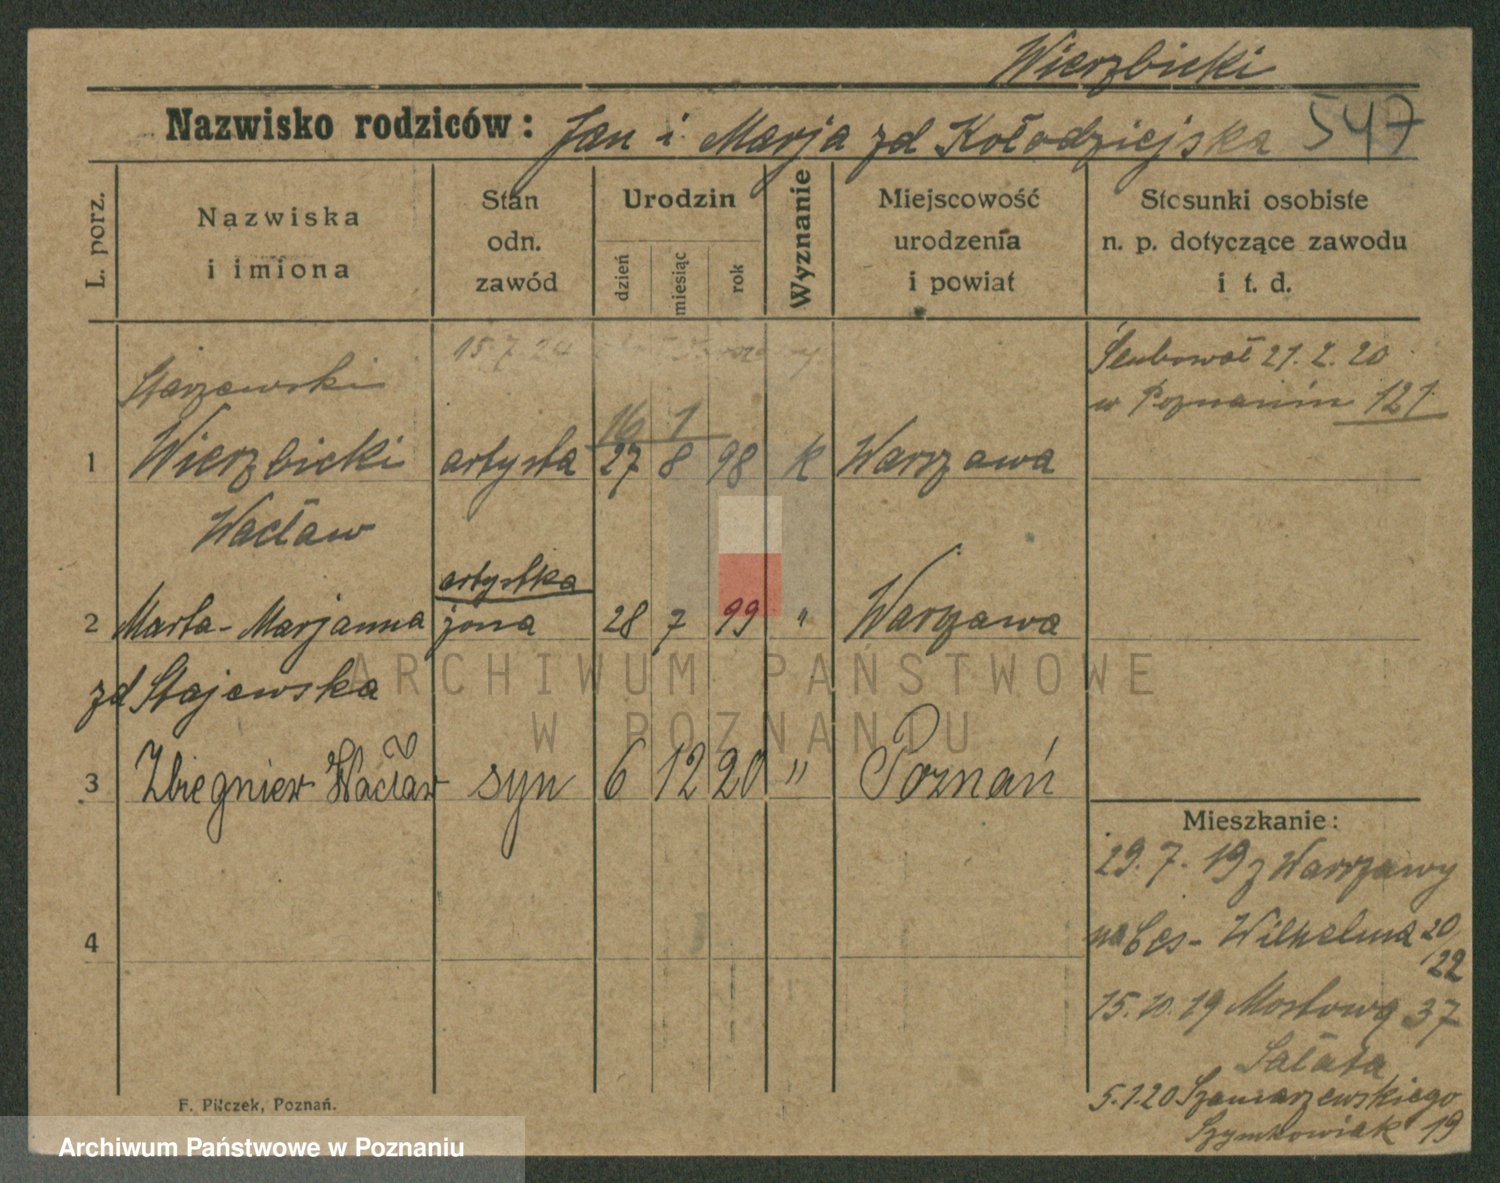 Wierzbicki
Nazwisko rodziców: Jan i Marja zd Kołodziejska 547
L. porz.
Nazwiska
i imiona
Stan
odn.
zawód
Urodzin
dzień
miesiąc
rok
Wyznanie
Miejscowość
urodzenia
i powiat
Stosunki osobiste
n. p. dotyczące zawodu
i t. d.
15.7.24
Ślubował 21.2.20
w Poznaniu 121
Starzewski
16 1
1 Wierzbicki artysta 27 8 98 k Warszawa
Wacław
artystka
2 Marta-Marjanna żona 28 7 99 " Warszawa
zd Stajewska
3 Zbiegniew Wacław syn 6 12 20 " Poznań
4
Mieszkanie:
29.7.19 z Warszawy
na Ces-Wilhelma 20
22
15.10.19 Mostowa 37
Sałata
5.1.20 Szamarzewskiego
Szymkowiak 19
F. Pilczek, Poznań.
ARCHIWUM PAŃSTWOWE
W POZNANIU
Archiwum Państwowe w Poznaniu